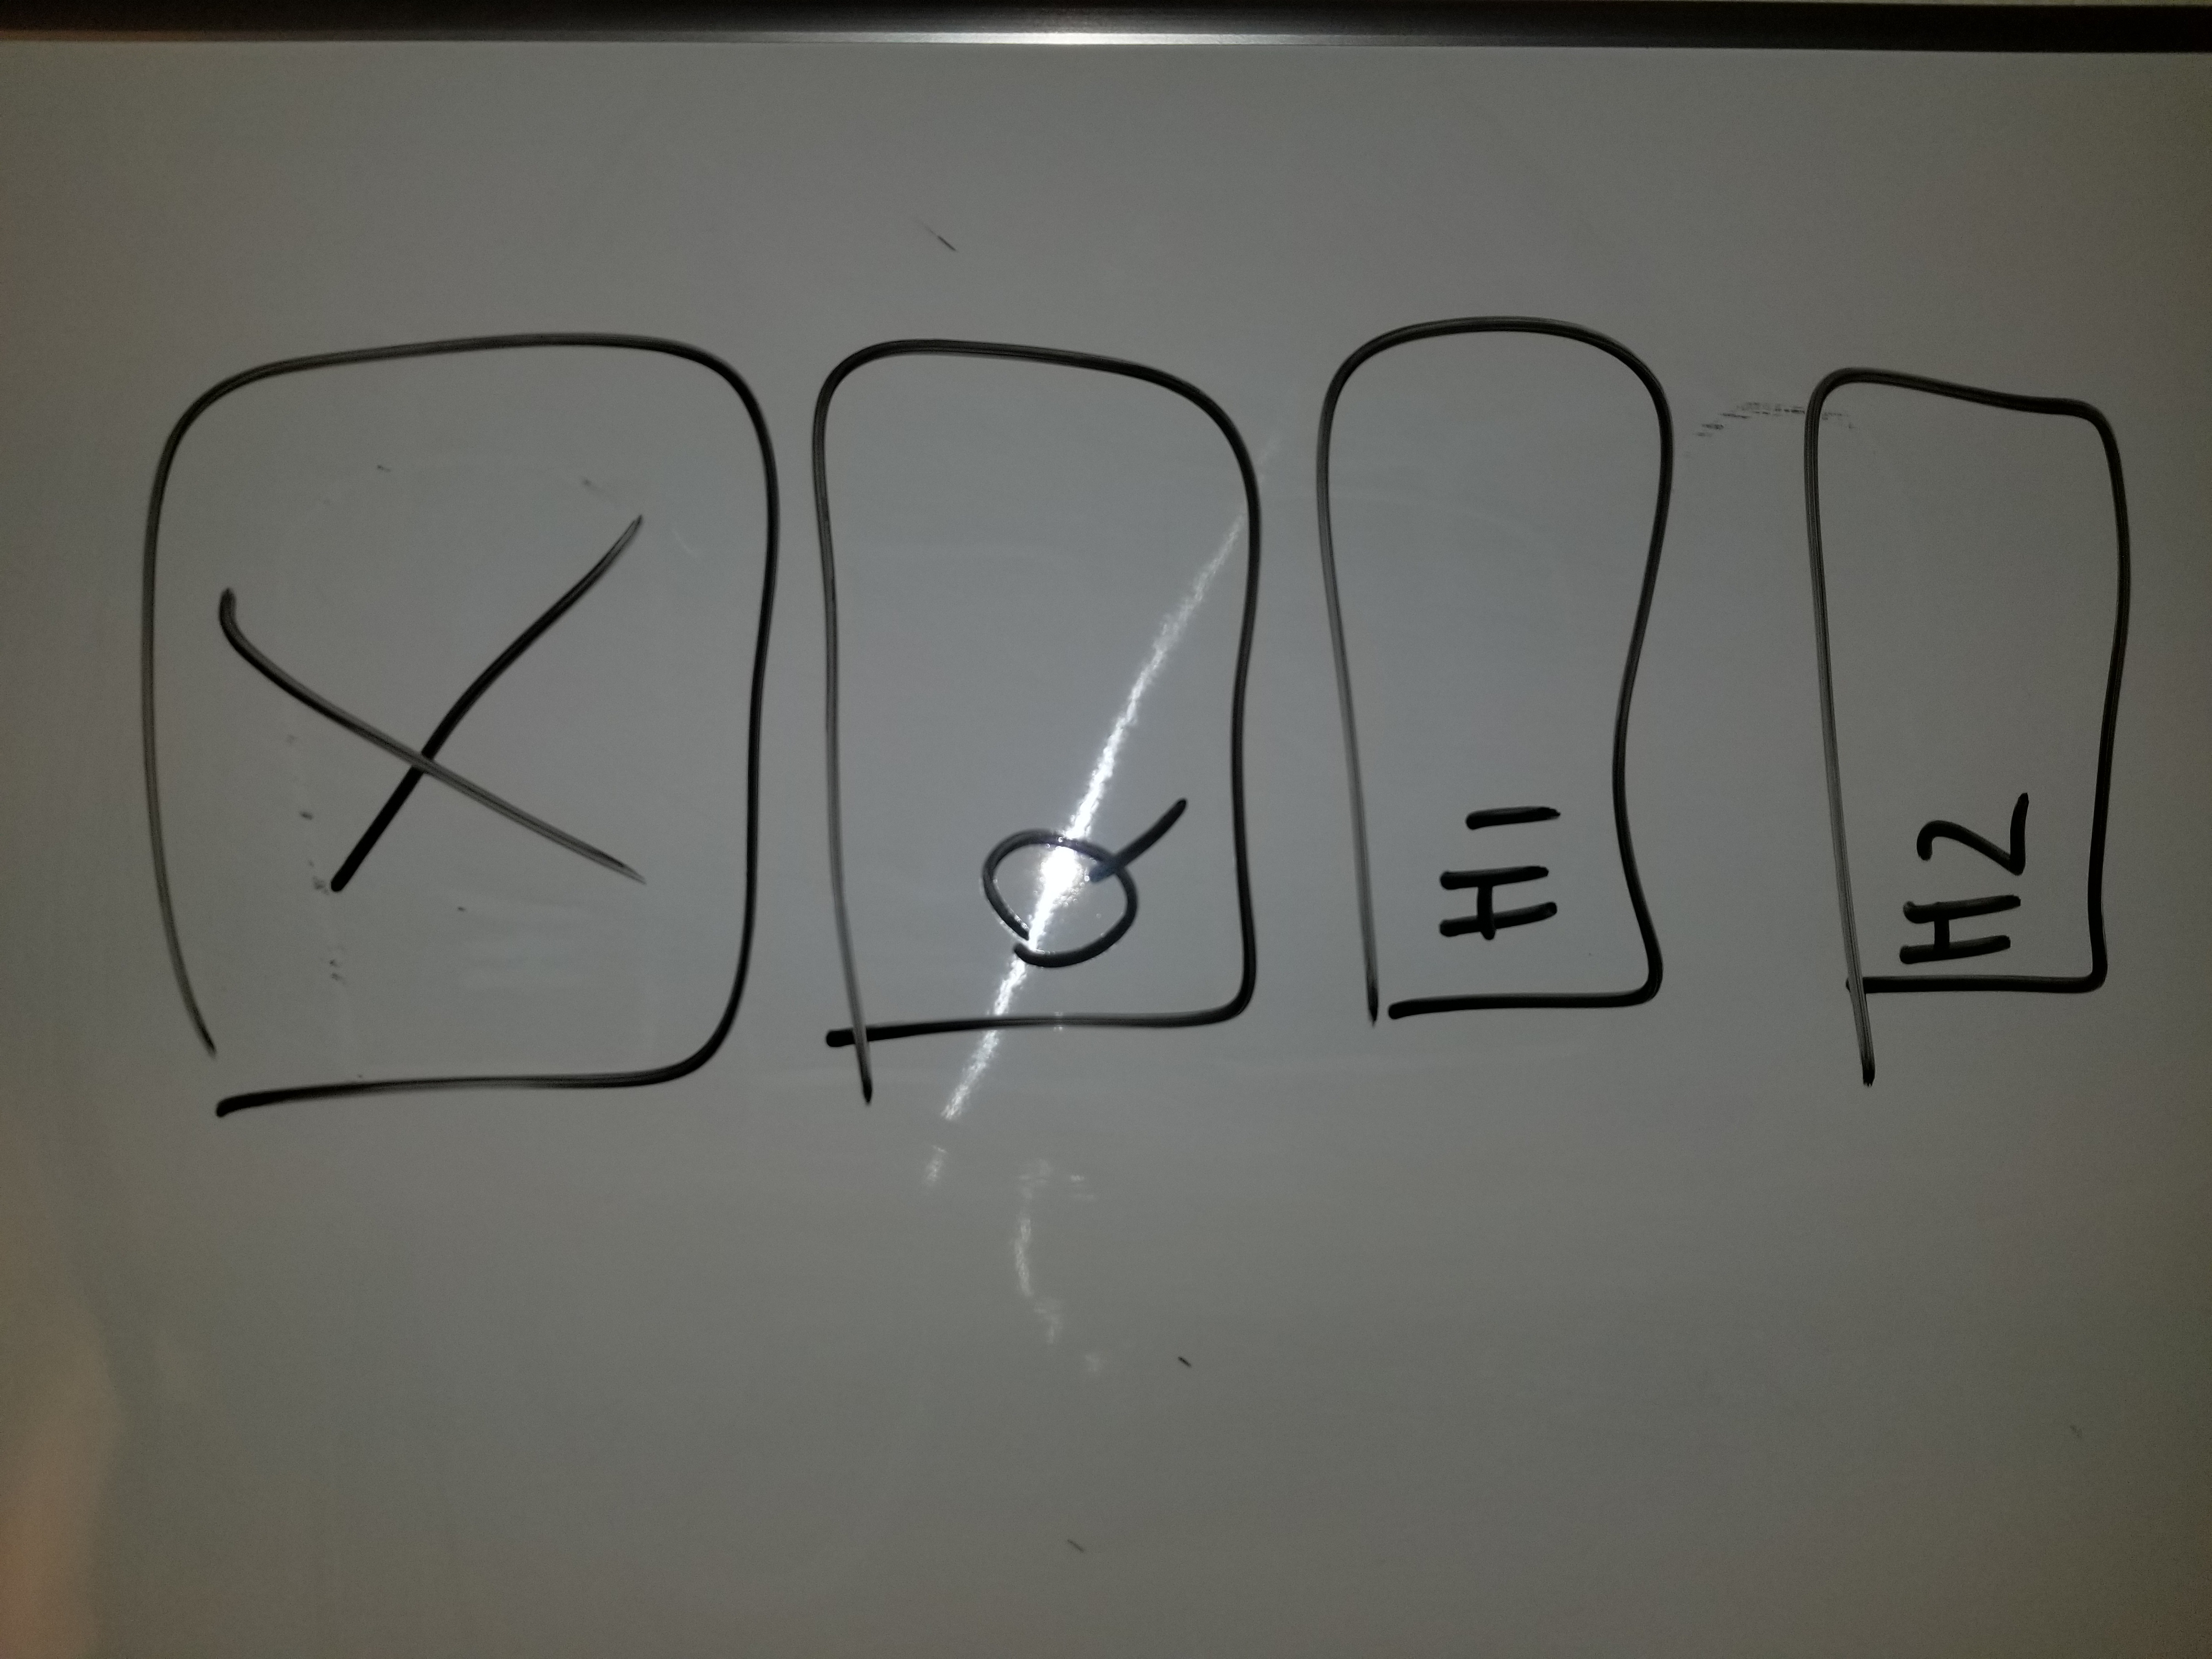 X
Q
H1
H2